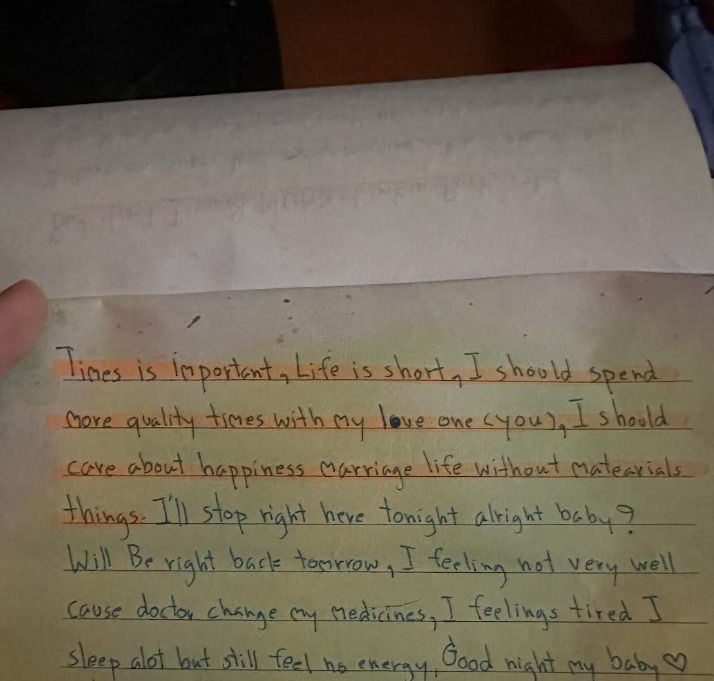 Times is important, Life is short, I should spend
more quality times with my love one (you), I should
care about happiness marriage life without matearials
things. I'll stop right here tonight alright baby?
Will Be right back tomrrow, I feeling not very well
cause doctor change my medicines, I feelings tired I
sleep alot but still feel no energy, Good night my baby ♡